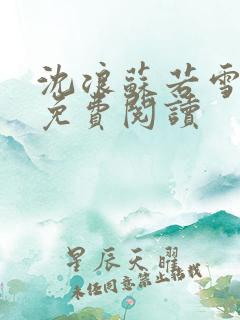 沈浪蘇若雪
免費閱讀
星辰天曜
未经同意禁止转载